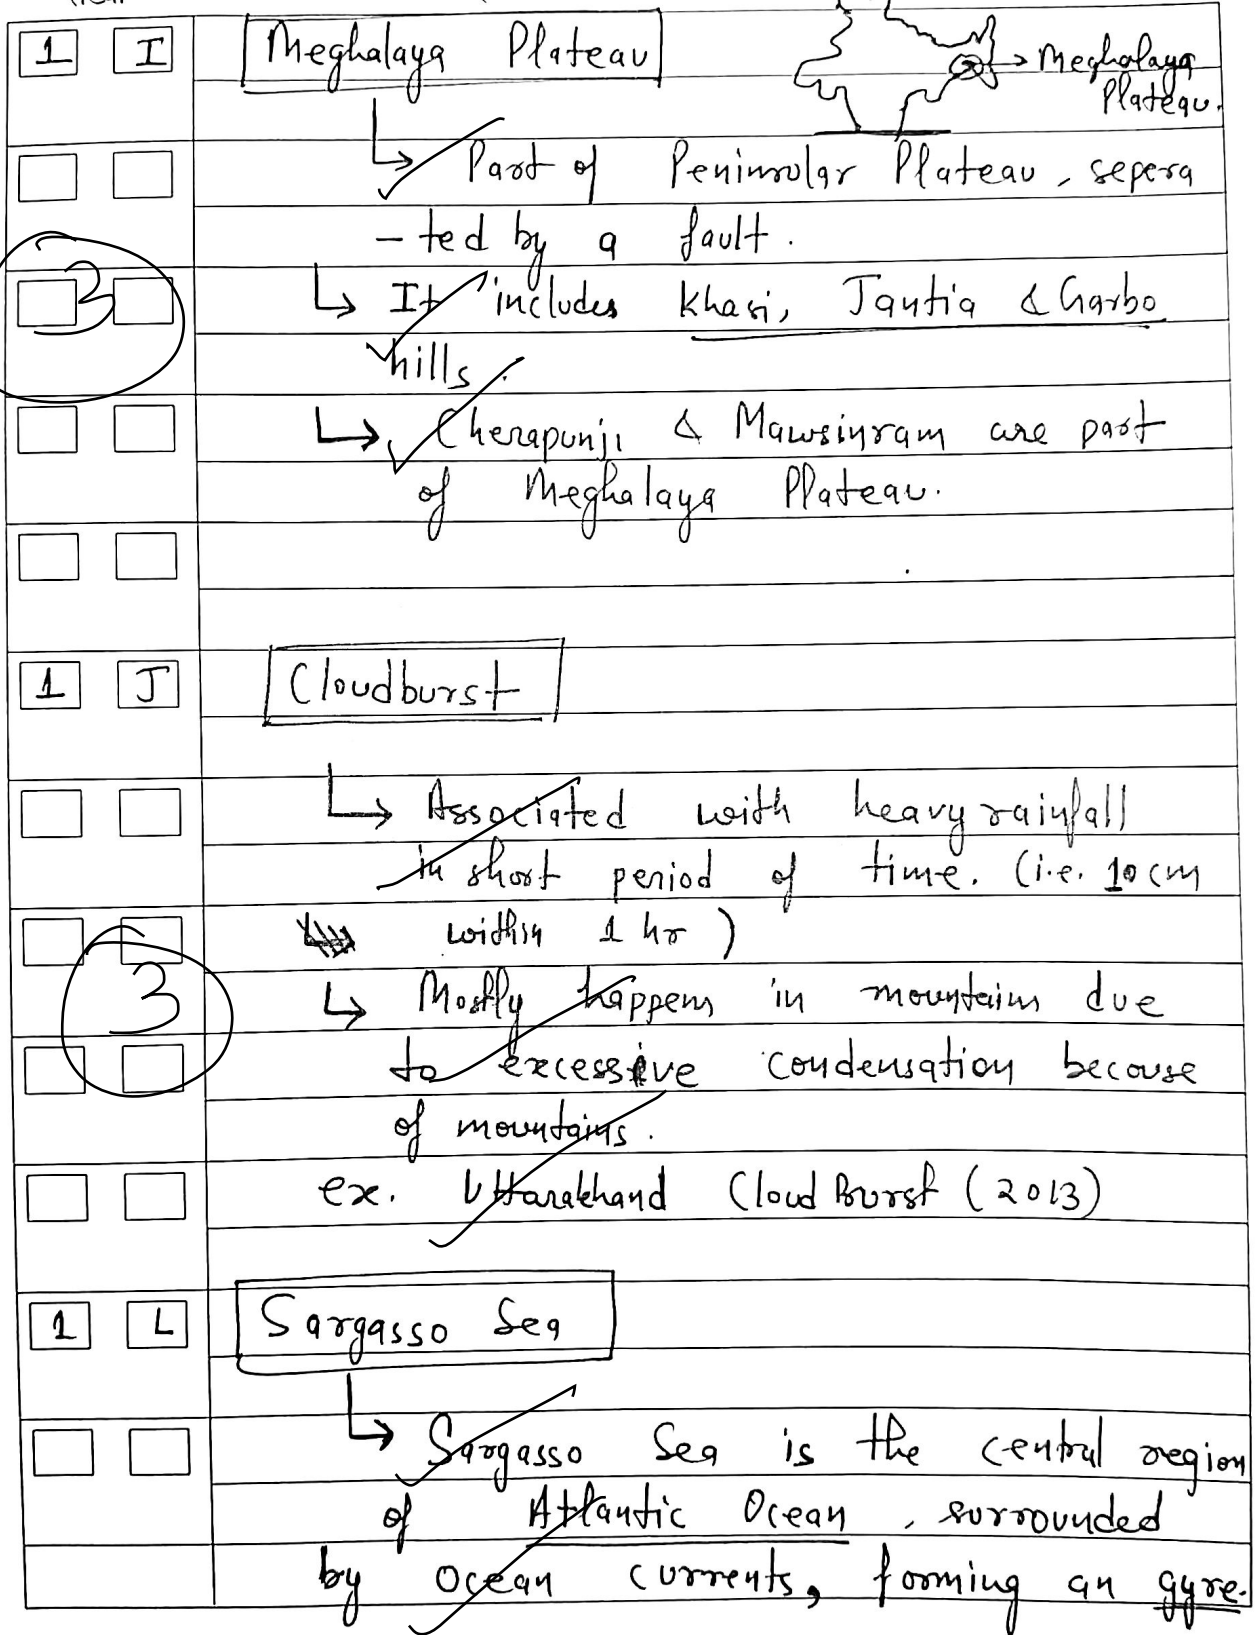 1 I Meghalaya Plateau
→ Meghalaya
Plateau.
↳ Part of Peninsular Plateau, sepera
- ted by a fault.
↳ It includes Khasi, Jantia & Garbo
hills.
3
↳ Cherapunji & Mawsinram are part
of Meghalaya Plateau.
1 J Cloudburst
↳ Associated with heavy rainfall
in short period of time. (i.e. 10 cm
within 1 hr)
↳ Mostly happens in mountains due
3
to excessive condensation becouse
of mountains.
ex. Uttarakhand Cloud Burst (2013)
1 L Sargasso Sea
↳ Sargasso Sea is the central region
of Atlantic Ocean, surrounded
by Ocean currents, forming an gyre.